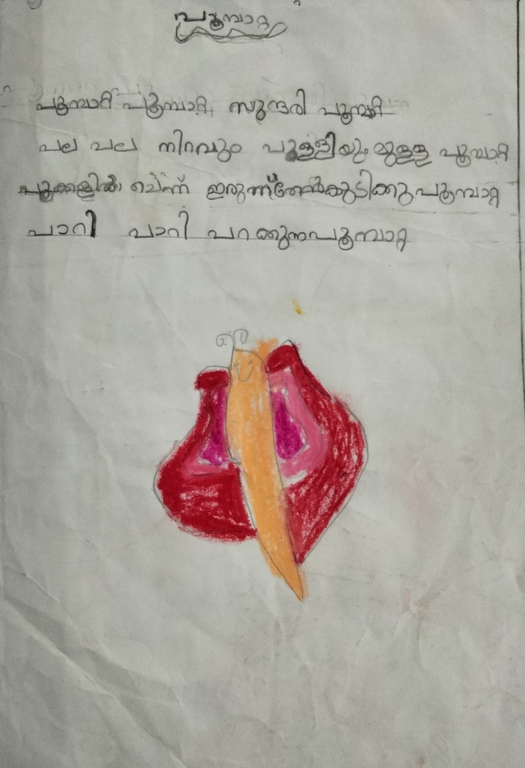 പൂമ്പാറ്റ
പൂമ്പാറ്റ പൂമ്പാറ്റ സുന്ദരി പൂമ്പാറ്റ
പല പല നിറവും പുള്ളിയുമുള്ള പൂമ്പാറ്റ
പൂക്കളിൽ ചെന്ന് ഇരുന്ന്തേൻകുടിക്കുപൂമ്പാറ്റ
പാറി പാറി പറക്കുന്നപൂമ്പാറ്റ